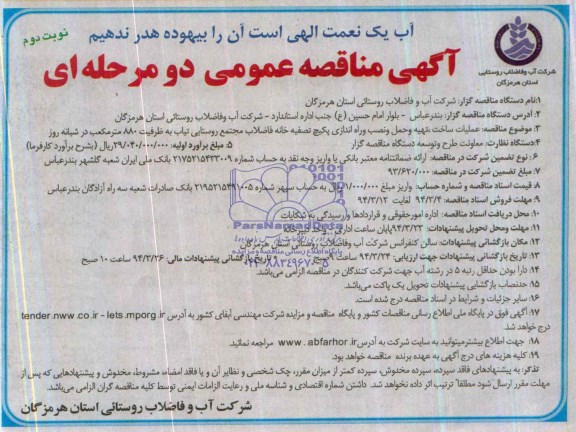 آب یک نعمت الهی است آن را بیهوده هدر ندهیم
نوبت دوم
آگهی مناقصه عمومی دو مرحله ای
شرکت آب وفاضلاب روستایی
استان هرمزگان
۱:نام دستگاه مناقصه گزار: شرکت آب و فاضلاب روستائی استان هرمزگان
۲. آدرس دستگاه مناقصه گزار: بندرعباس - بلوار امام حسین (ع) جنب اداره استاندارد - شرکت آب وفاضلاب روستائی استان هرمزگان
۳. موضوع مناقصه: عملیات ساخت ،تهیه وحمل ونصب وراه اندازی پکیچ تصفیه خانه فاضلاب مجتمع روستایی تیاب به ظرفیت ۸۸۰ مترمکعب در شبانه روز
۴. دستگاه نظارت: معاونت طرح وتوسعه دستگاه مناقصه گزار ۵. مبلغ برآورد اولیه: ۲۹/۰۴۰/۰۰۰/۰۰۰ریال (بشرح برآورد کارفرما)
۶. نوع تضمین شرکت در مناقصه: ارائه ضمانتنامه معتبر بانکی یا واریز وجه نقد به حساب شماره ۲۱۷۵۲۱۵۴۳۳۰۰۹ بانک ملی ایران شعبه گلشهر بندرعباس
۷. مبلغ تضمین شرکت در مناقصه: ۹۳/۶۲۰/۰۰۰
۸. قیمت اسناد مناقصه و شماره حساب: واریز مبلغ ۱/۰۰۰/۰۰۰ریال به حساب سپهر شماره ۲۱۹۵۲۱۵۴۹۱۰۰۵ بانک صادرات شعبه سه راه آزادگان بندرعباس
۹. مهلت فروش اسناد مناقصه: ۹۴/۳/۴ لغایت ۹۴/۳/۱۲
۱۰. محل دریافت اسناد مناقصه: اداره امورحقوقی و قراردادها ورسیدگی به شکایات
۱۱. مهلت ومحل تحویل پیشنهادات: ۹۴/۳/۲۳پایان ساعت اداری - واحد دبیرخانه
۱۲. مکان بازگشائی پیشنهادات: سالن کنفرانس شرکت آب وفاضلاب روستائی استان هرمزگان
۱۳. تاریخ بازگشائی پیشنهادات جهت ارزیابی: ۹۴/۳/۲۴ ساعت ۹ صبح و تاریخ بازگشائی پیشنهادات مالی: ۹۴/۳/۲۶ ساعت ۱۰ صبح
۱۴. دارا بودن حداقل رتبه ۵ در رشته آب جهت شرکت کنندگان در مناقصه الزامی می باشد.
۱۵. حدنصاب بازگشایی پیشنهادات تحویل یک پاکت می باشد.
۱۶. سایر جزئیات و شرایط در اسناد مناقصه درج شده است.
۱۷. آگهی فوق در پایگاه ملی اطلاع رسانی مناقصات کشور و پایگاه مناقصه و مزایده شرکت مهندسی آبفای کشور به آدرس tender.nww.co.ir - iets.mporg.ir
درج خواهد شد.
۱۸. جهت اطلاع بیشترمیتوانید به سایت شرکت به آدرس www.abfarhor.ir مراجعه نمائید
۱۹. کلیه هزینه های درج آگهی به عهده برنده مناقصه خواهد بود.
تذکر: به پیشنهادهای فاقد سپرده، سپرده مخدوش، سپرده کمتر از میزان مقرر، چک شخصی و نظایر آن و یا فاقد امضاء، مشروط، مخدوش و پیشنهادهایی که پس از
مهلت مقرر ارسال شود مطلقاً ترتیب اثر داده نخواهد شد. داشتن شماره اقتصادی و شناسه ملی و رعایت الزامات ایمنی توسط کلیه مناقصه گران الزامی می باشد.
شرکت آب و فاضلاب روستائی استان هرمزگان
ParsNamadData
پایگاه اطلاع رسانی مناقصه و مزایده
۰۲۱-۸۸۳۴۹۶۷۰-۵